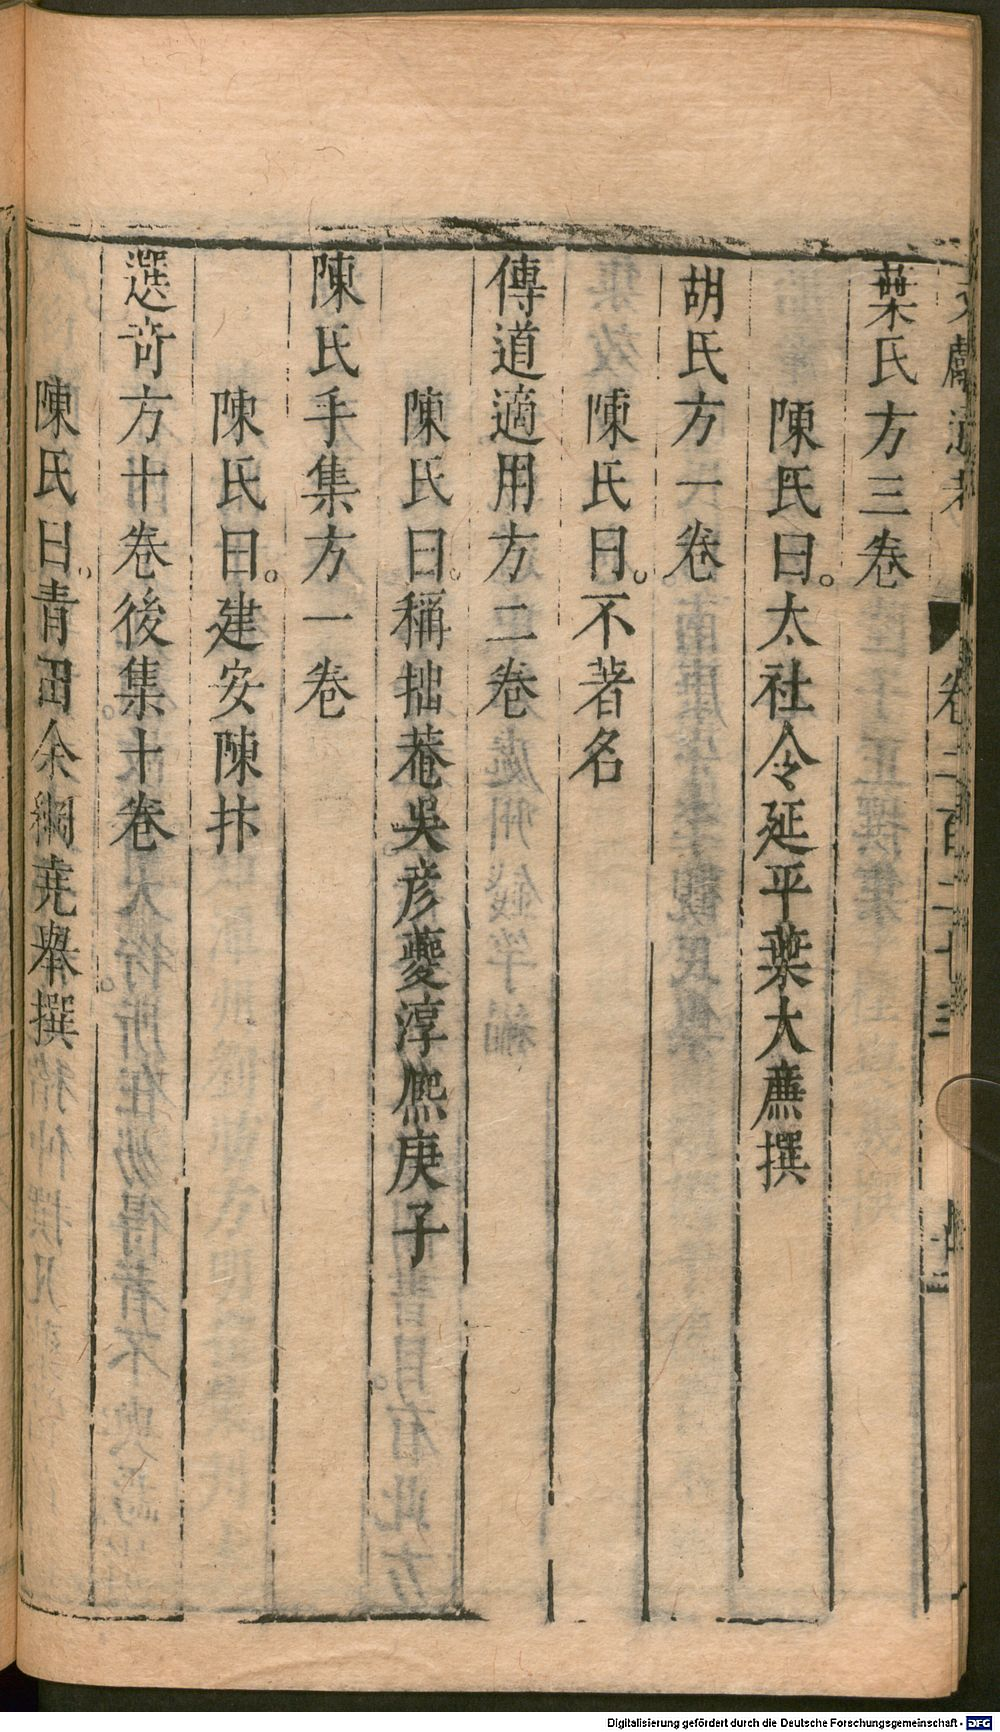 文獻通考 卷二百二十三 四十三
葉氏方三卷
陳氏曰。太社令延平葉大亷撰
胡氏方一卷
陳氏曰。不著名
傳道適用方二卷
陳氏曰。稱拙菴吳彦夔淳熈庚子
陳氏手集方一卷
陳氏曰。建安陳抃
選竒方十卷後集十卷
陳氏曰。青田余綱堯舉撰
Digitalisierung gefördert durch die Deutsche Forschungsgemeinschaft - DFG